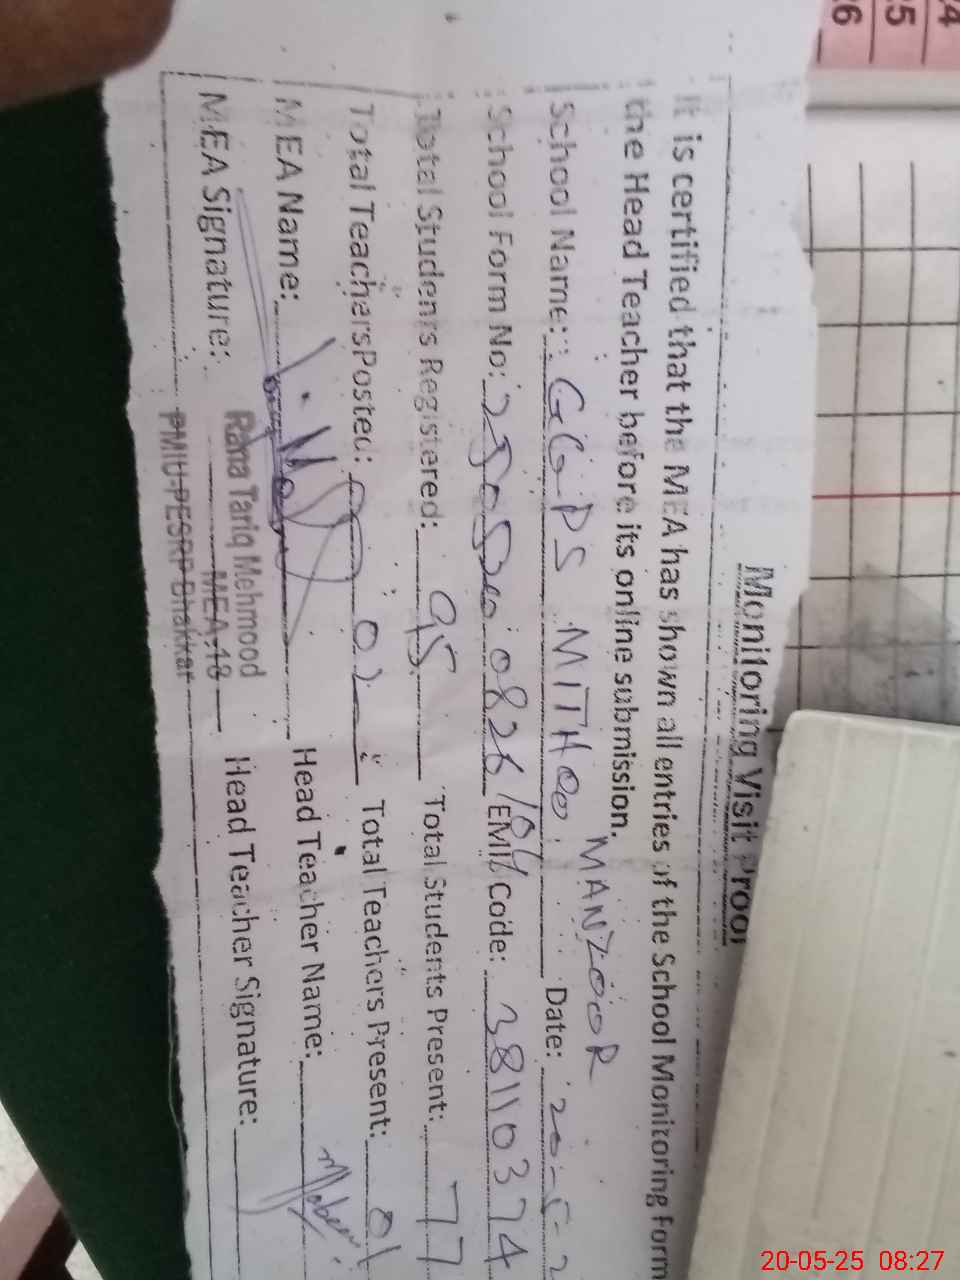 Monitoring Visit Proof
It is certified that the MEA has shown all entries of the School Monitoring Form
the Head Teacher before its online submission.
MANZOOR
School Name: GGPS MITHOO Date: 20-5-2
School Form No: EMIS Code: 38110374
Total Students Registered: 95 Total Students Present: 77
Total Teachers Posted: 02 Total Teachers Present: 01
MEA Name: Head Teacher Name:
MEA Signature: Head Teacher Signature:
Rana Tariq Mehmood
MEA-18
PMIU-PESRP Bhakkar
26
25
24
20-05-25 08:27